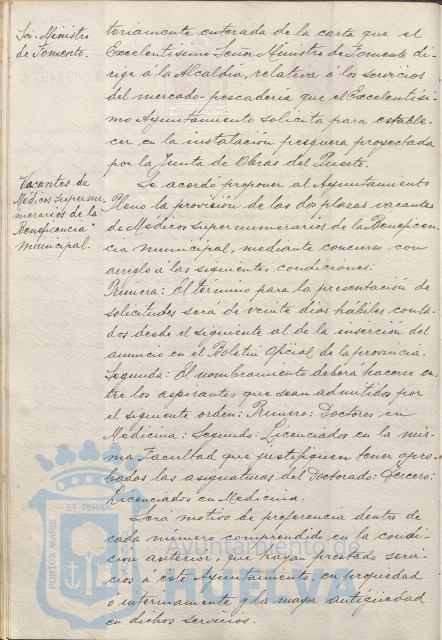 Sor. Ministro
de Fomento.
toriamente enterada de la carta que el
Excelentísimo Señor Ministro de Fomento di-
rige á la Alcaldía, relativa á los servicios
del mercado-pescadería que el Excelentísi-
mo Ayuntamiento solicita para estable-
cer en la instalación pesquera proyectada
por la Junta de Obras del Puerto.
Vacantes de
Médicos Supernu-
merarios de la
Beneficencia
municipal.
Se acordó proponer al Ayuntamiento
Pleno la provisión de las dos plazas vacantes
de Médicos Supernumerarios de la Beneficen-
cia municipal, mediante concurso con
arreglo á las siguientes condiciones:
Primera: El término para la presentación de
solicitudes será de veinte días hábiles conta-
dos desde el siguiente al de la inserción del
anuncio en el Boletín Oficial de la provincia.
Segunda: El nombramiento deberá hacerse en-
tre los aspirantes que sean admitidos por
el siguiente orden: Primero: Doctores en
Medicina: Segundo: Licenciados en la mis-
ma Facultad que justifiquen tener apro-
badas las asignaturas del Doctorado: Tercero:
Licenciados en Medicina.
Será motivo de preferencia dentro de
cada número comprendido en la condi-
ción anterior, que hayan prestado servi-
cios a este Ayuntamiento, en propiedad
ó interinamente y la mayor antigüedad
en dichos servicios.
PORTUS MARIS
ET TERRAE
Ayuntamiento de
HUELVA